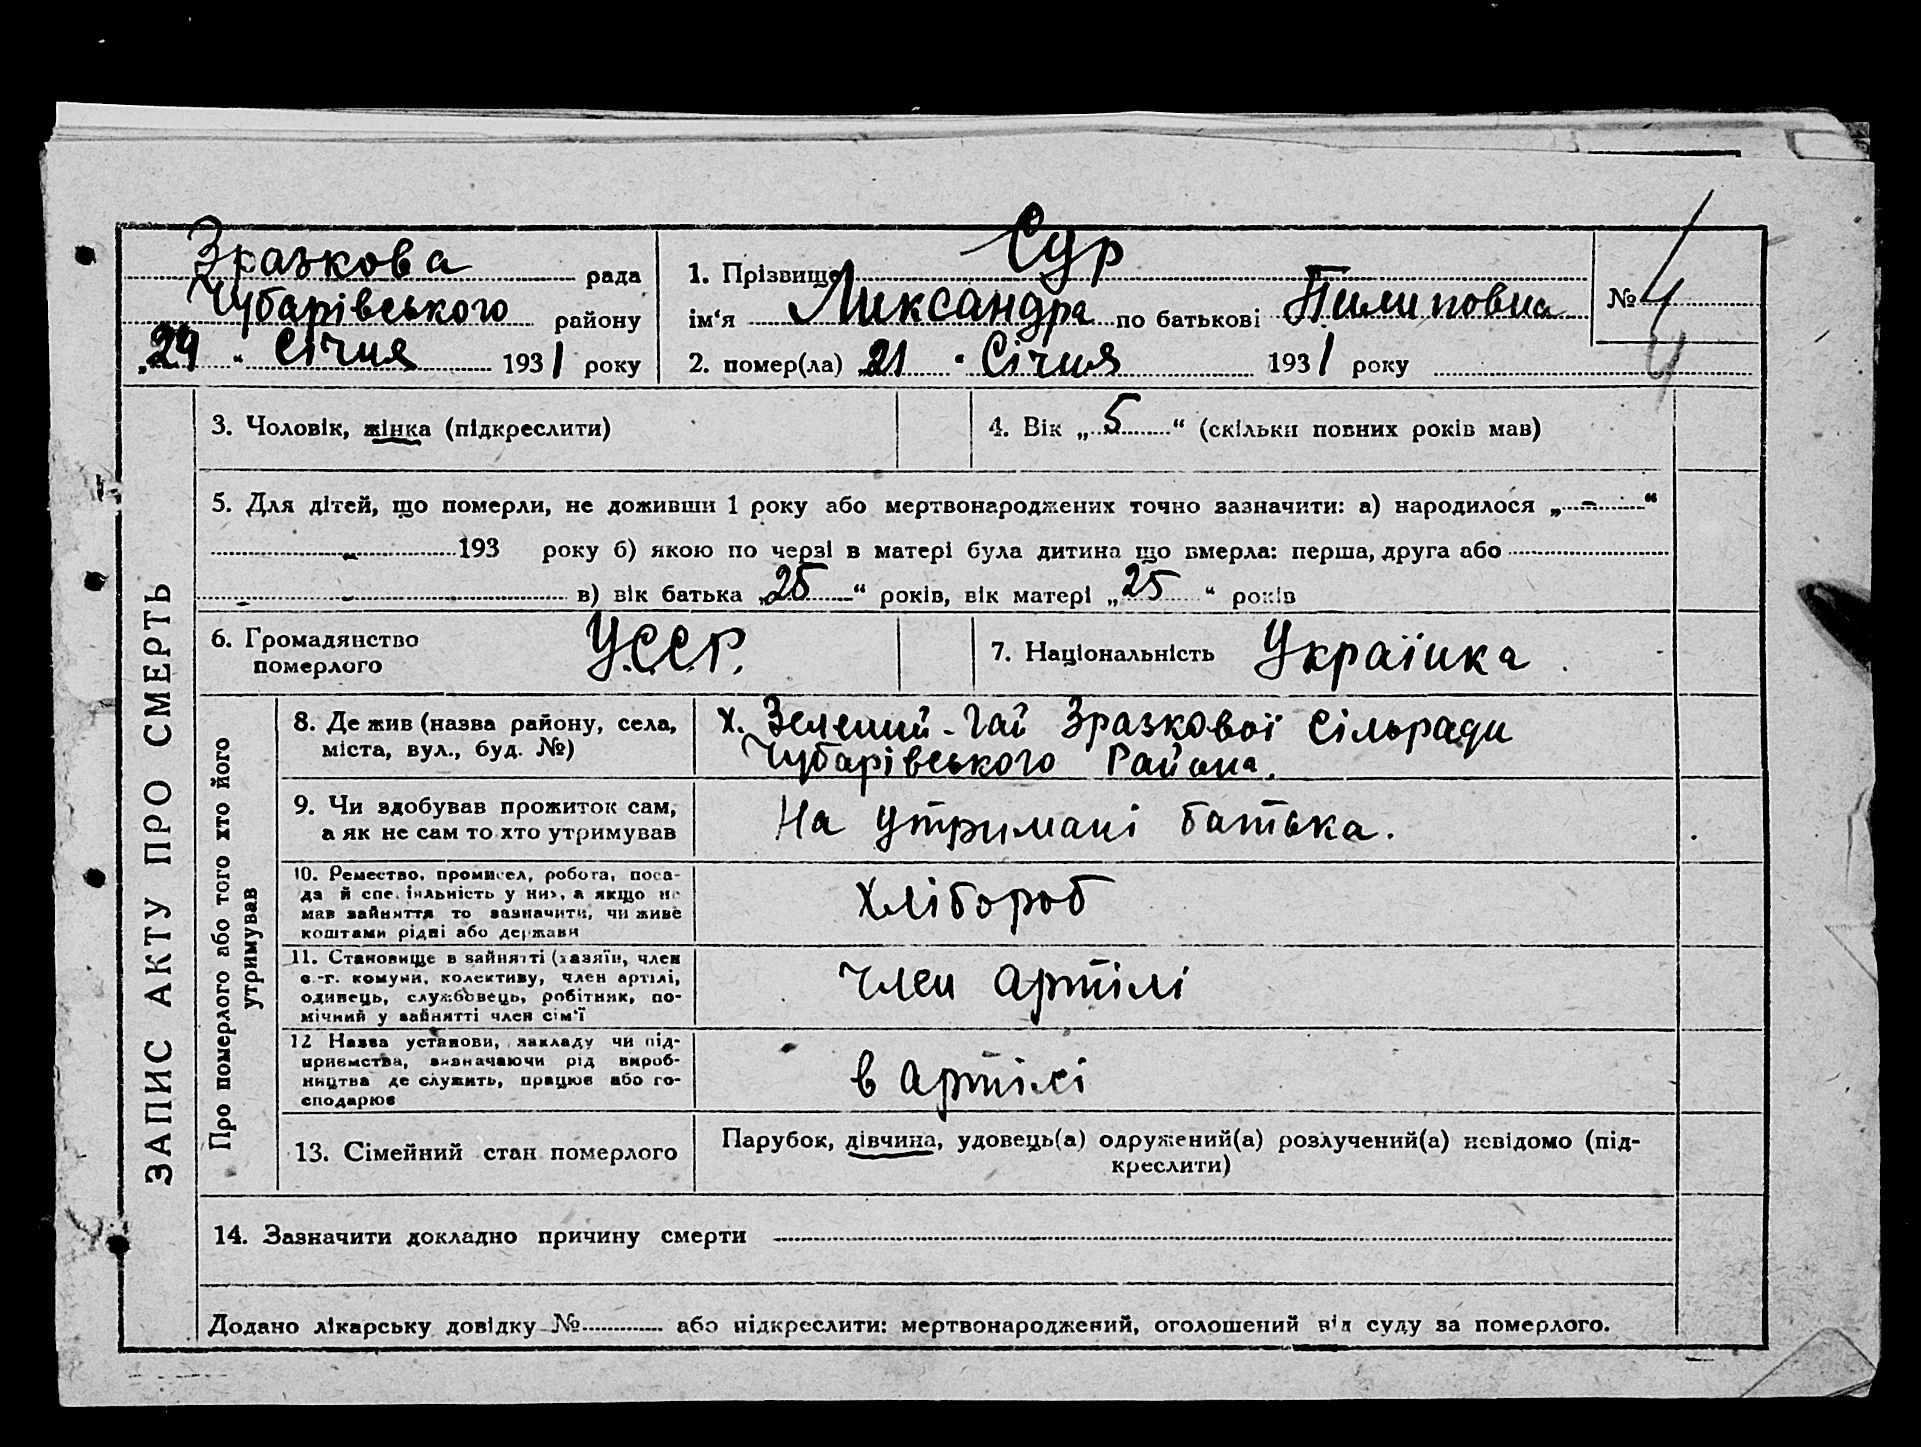 Зразкова рада
Чубарівського району
„24“ Січня 1931 року
1. Прізвище Сур
ім‘я Ликсандра по батькові Пилиповна
2. помер(ла) 21 Січня 1931 року
№ 4
4
ЗАПИС АКТУ ПРО СМЕРТЬ
3. Чоловік, жінка (підкреслити)
4. Вік „5“ (скільки повних років мав)
5. Для дітей, що померли, не доживши 1 року або мертвонароджених точно зазначити: а) народилося „-“
- 193 року б) якою по черзі в матері була дитина що вмерла: перша, друга або
- - - в) вік батька „25“ років, вік матері „25“ років
6. Громадянство
померлого
У.С.С.Р.
7. Національність Українка.
Про померлого або того хто його
утримував
8. Де жив (назва району, села,
міста, вул., буд. №)
х. Зелений-Гай Зразкової Сільради
Чубарівського Района.
9. Чи здобував прожиток сам,
а як не сам то хто утримував
На утримані батька.
10. Ремество, промисел, робота, поса-
да й спеціяльність у них, а якщо не
мав зайняття то зазначити, чи живе
коштами рідні або держави
Хлібороб
11. Становище в зайнятті (хазяїн, член
с.-г. комуни, колективу, член артілі,
одинець, службовець, робітник, по-
мічний у зайнятті член сім‘ї
член артілі
12 Назва установи, закладу чи під-
приємства, визначаючи рід вироб-
ництва де служить, працює або го-
сподарює
в артілі
13. Сімейний стан померлого
Парубок, дівчина, удовець(а) одружений(а) розлучений(а) невідомо (під-
креслити)
14. Зазначити докладно причину смерти
Додано лікарську довідку № або підкреслити: мертвонароджений, оголошений від суду за померлого.